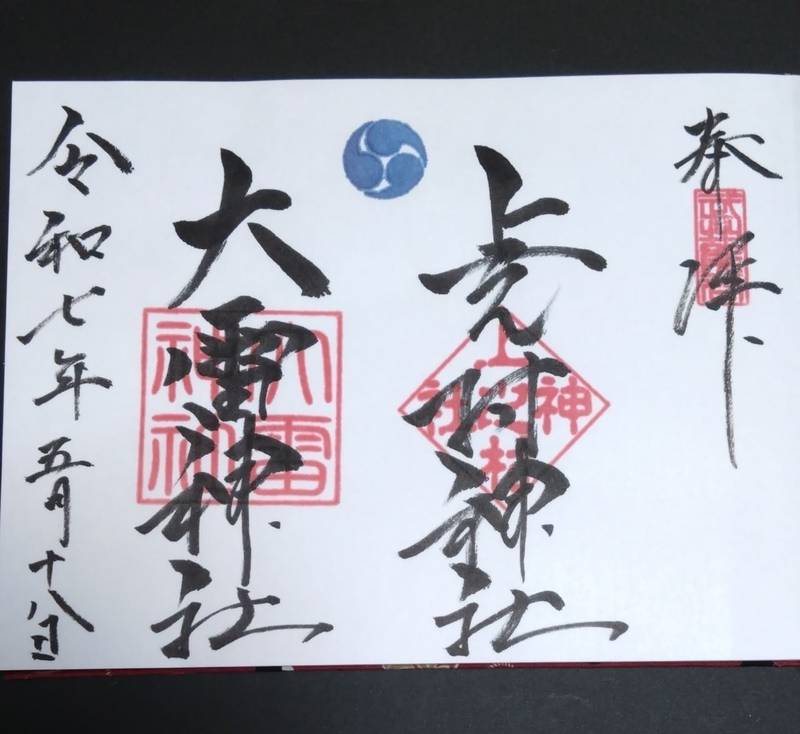 奉拝
上之村神社
上之村神社
大雷神社
大雷神社
令和七年五月十八日